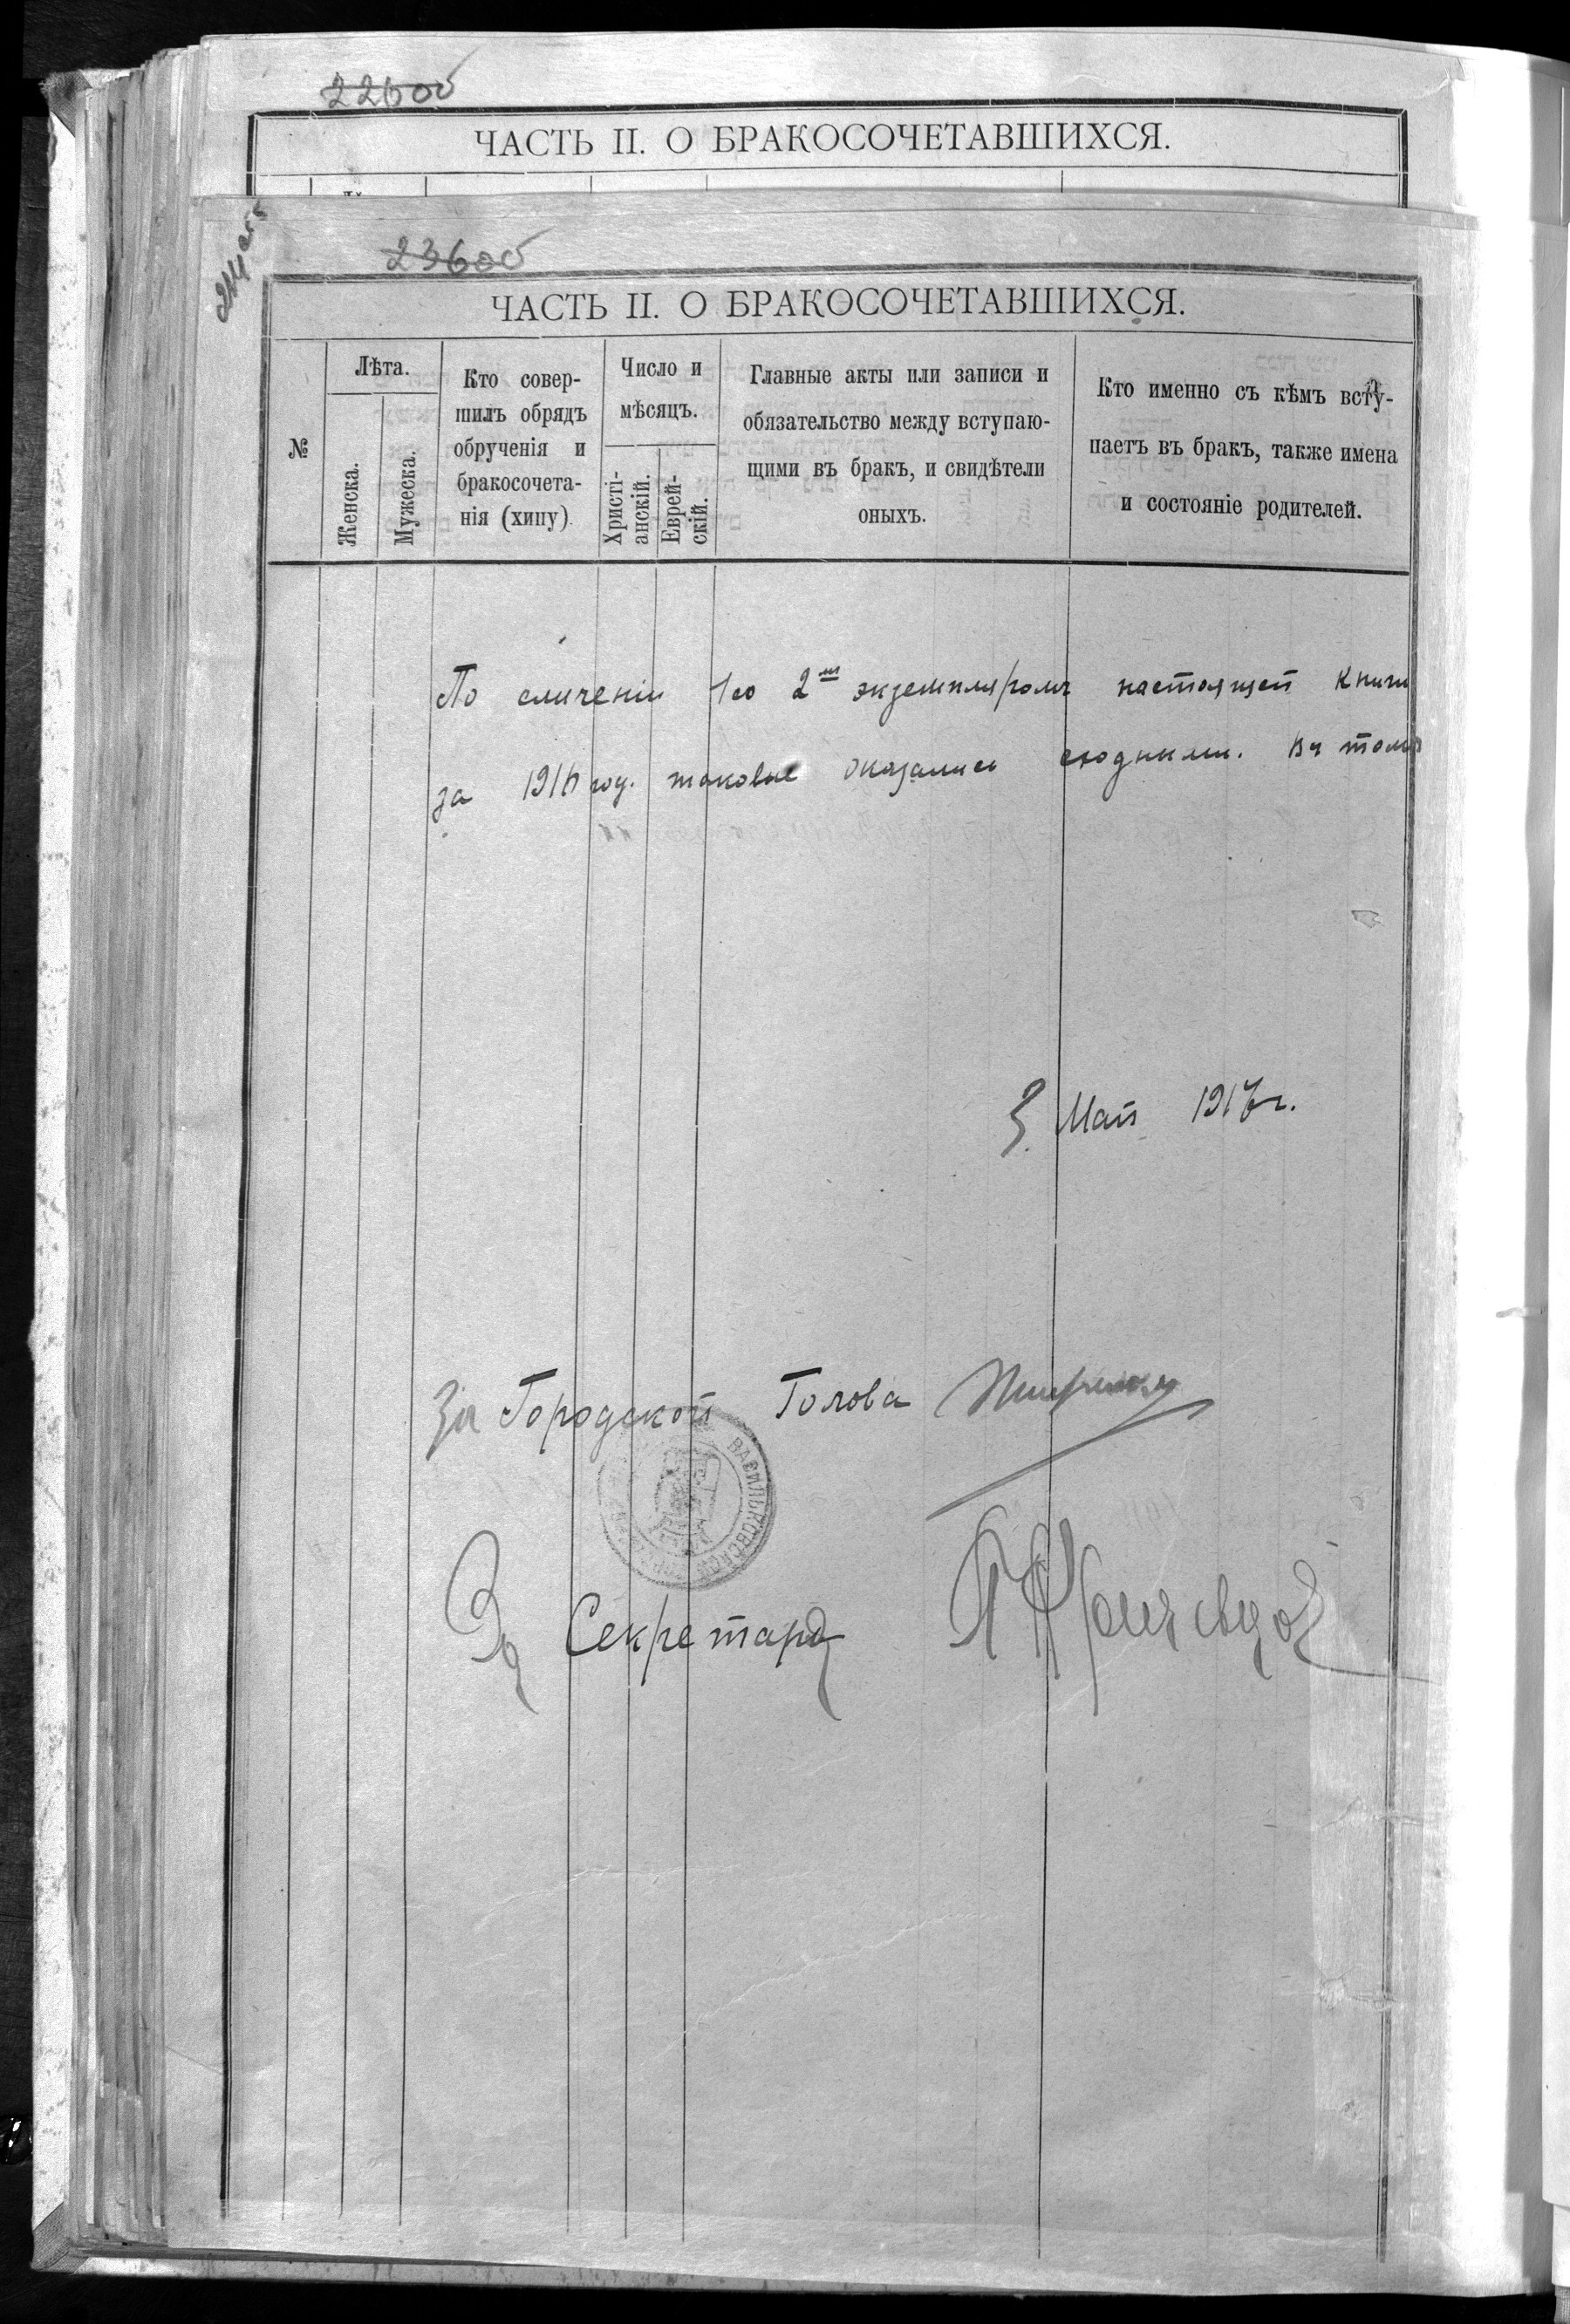 226об
ЧАСТЬ II. О БРАКОСОЧЕТАВШИХСЯ.
236об
ЧАСТЬ II. О БРАКОСОЧЕТАВШИХСЯ.
№
Лѣта.
Женска.
Мужеска.
Кто совер-
шилъ обрядъ
обрученія и
бракосочета-
нія (хипу).
Число и
мѣсяцъ.
Христі-
анскій.
Еврей-
скій.
Главные акты или записи и
обязательство между вступаю-
щими въ бракъ, и свидѣтели
оныхъ.
Кто именно съ кѣмъ всту-
паетъ въ бракъ, также имена
и состояніе родителей.
По сличеніи 1го 2мъ экземпляромъ настоящей книги
за 1916 год. таковые оказались сходными. Въ томъ
3 Мая 1917 г.
За Городской Голова
ВАСИЛЬКОВСКАЯ
За Секретаря